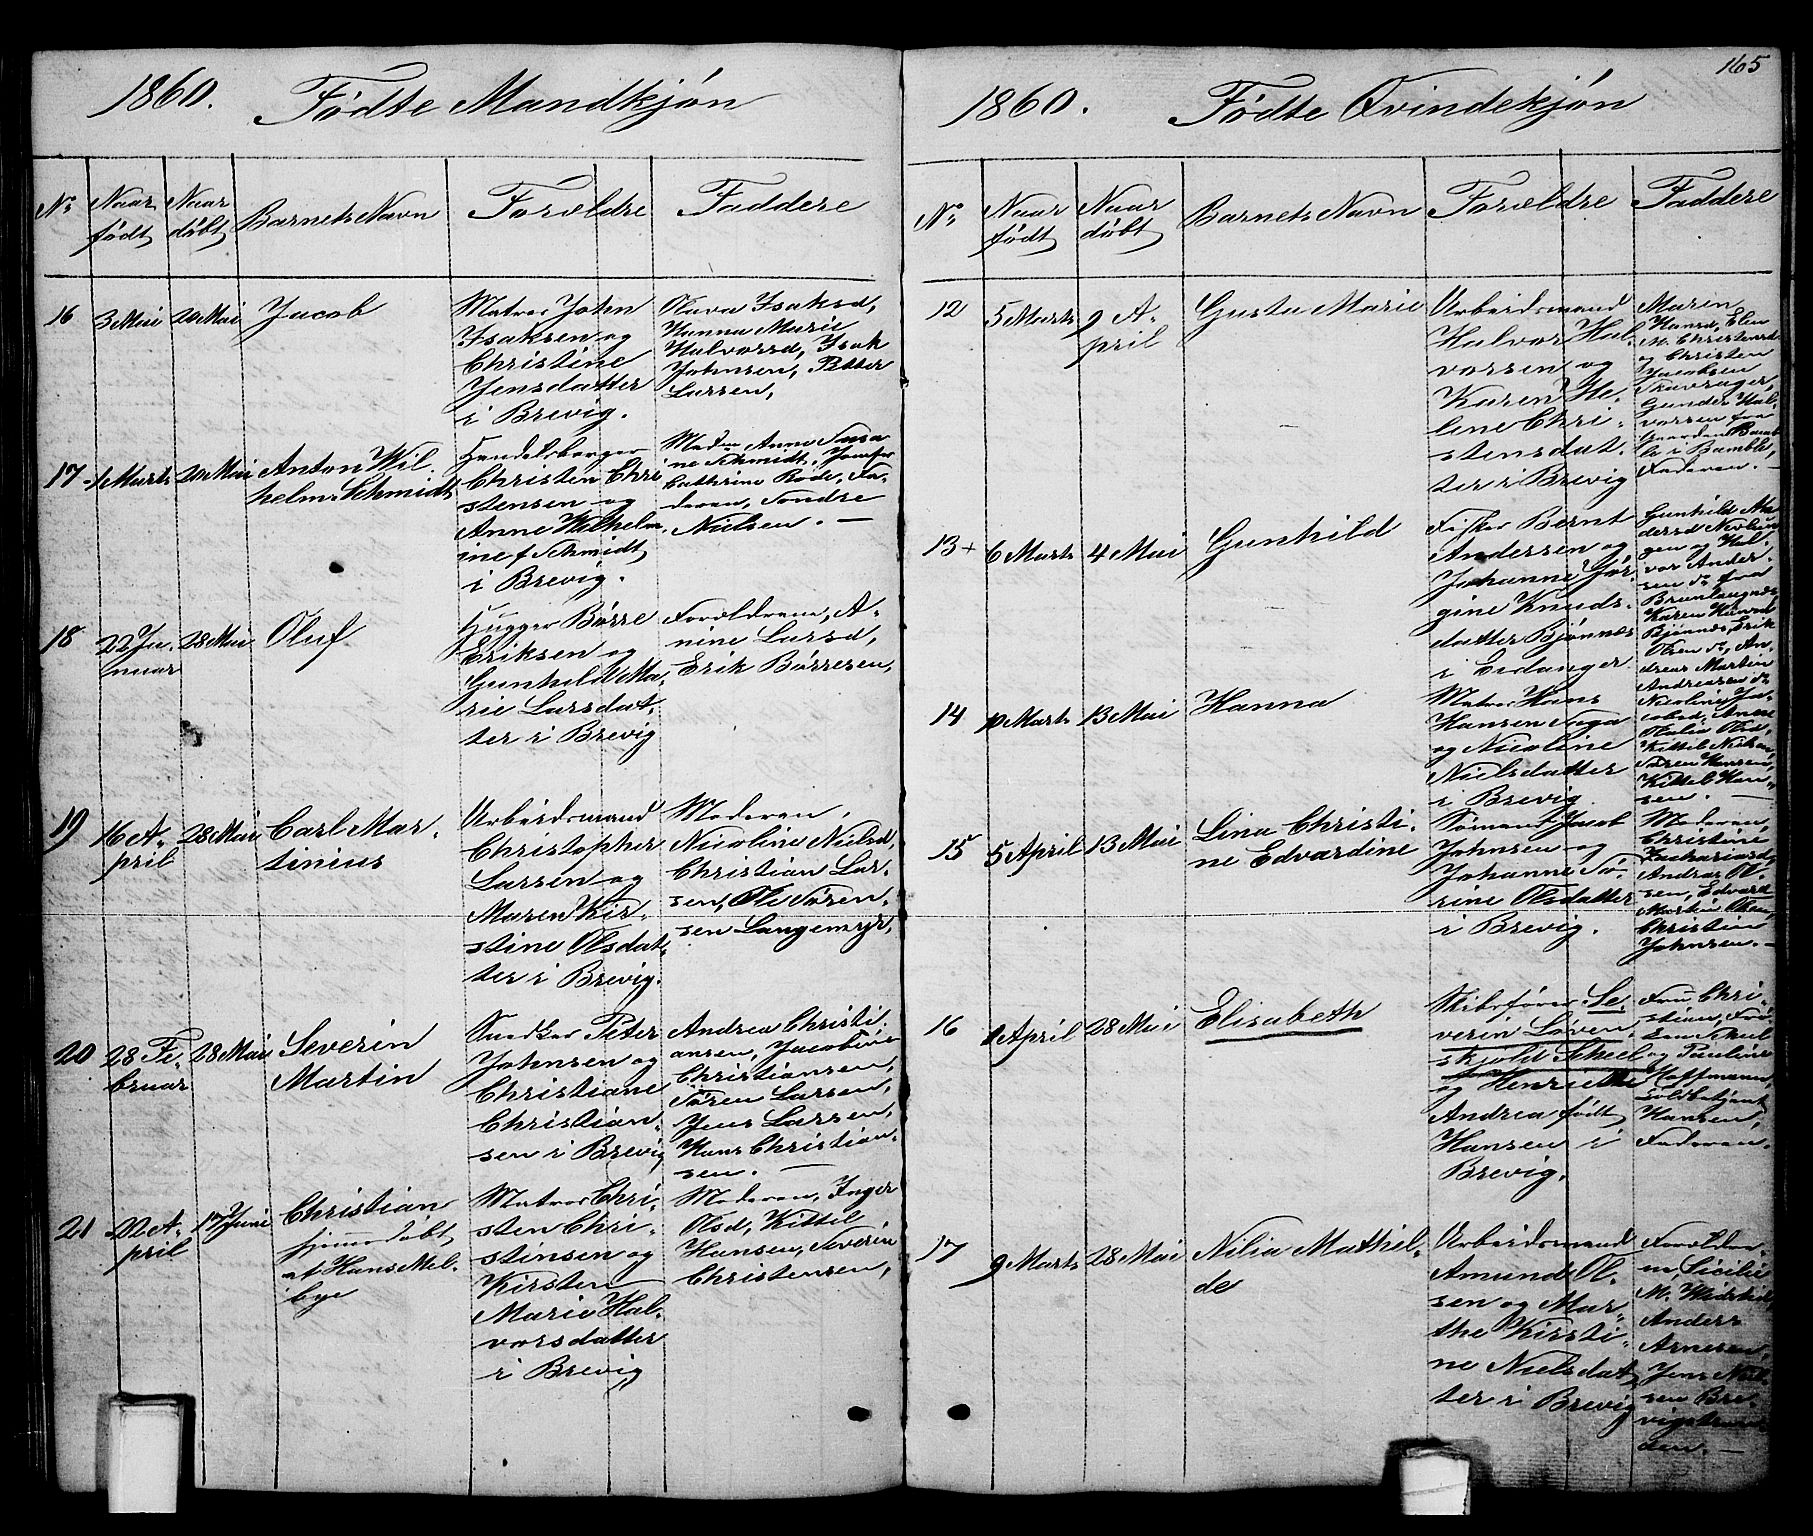 1860. Fødte Mandkjøn
No
Naar født
Naar døbt
Barnets Navn
Forældre
Faddere
16
3 Mai
20 Mai
Jacob
Matros John
Isaksen og
Christine
Jensdatter
i Brevig.
Olava Isaksd,
Hanna Marie
Halvorsd, Isak
Johnsen, Petter
Larsen,
17
1 Marts
20 Mai
Anton Wil-
helm Schmidt
Handelsborger
Christen Chri
stensen og
Anne Wilhelm
ine f Schmidt
i Brevig.
Mad Anne
ne Schmidt, Jomfr
Cathrine Bode, Fa-
deren, Tondre
Nielsen. —
18
22 Ja-
nuar
28 Mai
Oluf
Hugger Børre
Eriksen og
Gunhild Ma-
rie Larsdat-
ter i Brevig
Forældrene, A-
nine Larsd,
Erik Børresen,
19
16 A-
pril
28 Mai
Carl Mar-
tinius
Arbeidsmand
Christopher
Larsen og
Maren Kir-
stine Olsdat-
ter i Brevig.
Moderen,
Nicoline Nielsd,
Christian Lar-
sen, Ole Søren-
sen Langemyr,
20
28 Fe-
bruar
28 Mai
Severin
Martin
Snedker Peter
Johnsen og
Christiane
Christian-
sen i Brevig
Andrea Christi-
ansen, Jacobine
Christiansen,
Søren Larsen,
Jens Larsen,
Hans Christian-
sen. —
21
22 A-
pril
17 Juni
Christian
hjemmedøbt
at Hans Mel-
bye
Matros Chri-
sten Chri-
stensen og
Kirsten
Marie Hal-
vorsdatter
i Brevig
Moderen, Inger
Olsd, Kittil
Hansen, Severin
Christensen,
165
1860. Fødte Qvindekjøn
No
Naar født
Naar døbt
Barnets Navn
Forældre
Faddere
12
5 Marts
9 A-
pril
Gusta Marie
Arbeidsmand
Halvor Hal-
vorsen og
Karen He-
line Chri-
stensdat-
ter i Brevig
Maren
Hansd, Elen
M. Christensd
og Christen
Jacobsen
Skavrager,
Gunder Hal-
vorsen fra
Gaarden
i Bamble,
Faderen. —
13 +
6 Marts
4 Mai
Gunhild
Fisker Bernt
Andersen og
Johanne Gør-
gine Knuds-
datter Bjønnes
i Eidanger
Gunhild An-
dersd Nevlun-
gen og Hal-
vor Ander-
sen do fra
Brunlaugnes,
Karen Hansd
Bjønnes, Erik
Olsen do, An-
dreas Martin
Andreasen do
14
10 Marts
13 Mai
Hanna
Matros Hans
Hansen
og Nicoline
Nielsdatter
i Brevig
Nicoline Ja-
cobsd, Anne
Olalia Olsd,
Kittil Nielsen,
Søren Hansen,
Kittel Han-
sen. —
15
5 April
13 Mai
Lina Christi-
ne Edvardine
Sømand Jacob
Johnsen og
Johanne So-
rine Olsdatter
i Brevig.
Moderen,
Christine
Zachariasd,
Andreas Ol-
sen, Edvard
Martin Olsen,
Christen
Johnsen. —
16
1 April
28 Mai
Elisabeth
Skibsfører Se-
verin Løven-
skjold Scheel
og Henriette
Andrea født
Hansen i
Brevig.
Fru Chri-
stian,
og Pauline
Hoffmann,
Toldbetjent
Hansen,
Faderen.
17
9 Marts
28 Mai
Nilia Mathil-
de
Arbeidsmand
Amund Ol-
sen og Mar-
the Kirsti-
ne Nielsdat
ter i Brevig
Forældre-
ne, Cicilie
M.
Anders
Arnesen,
Jens Niel-
sen Bre-
vigstran-
den. —